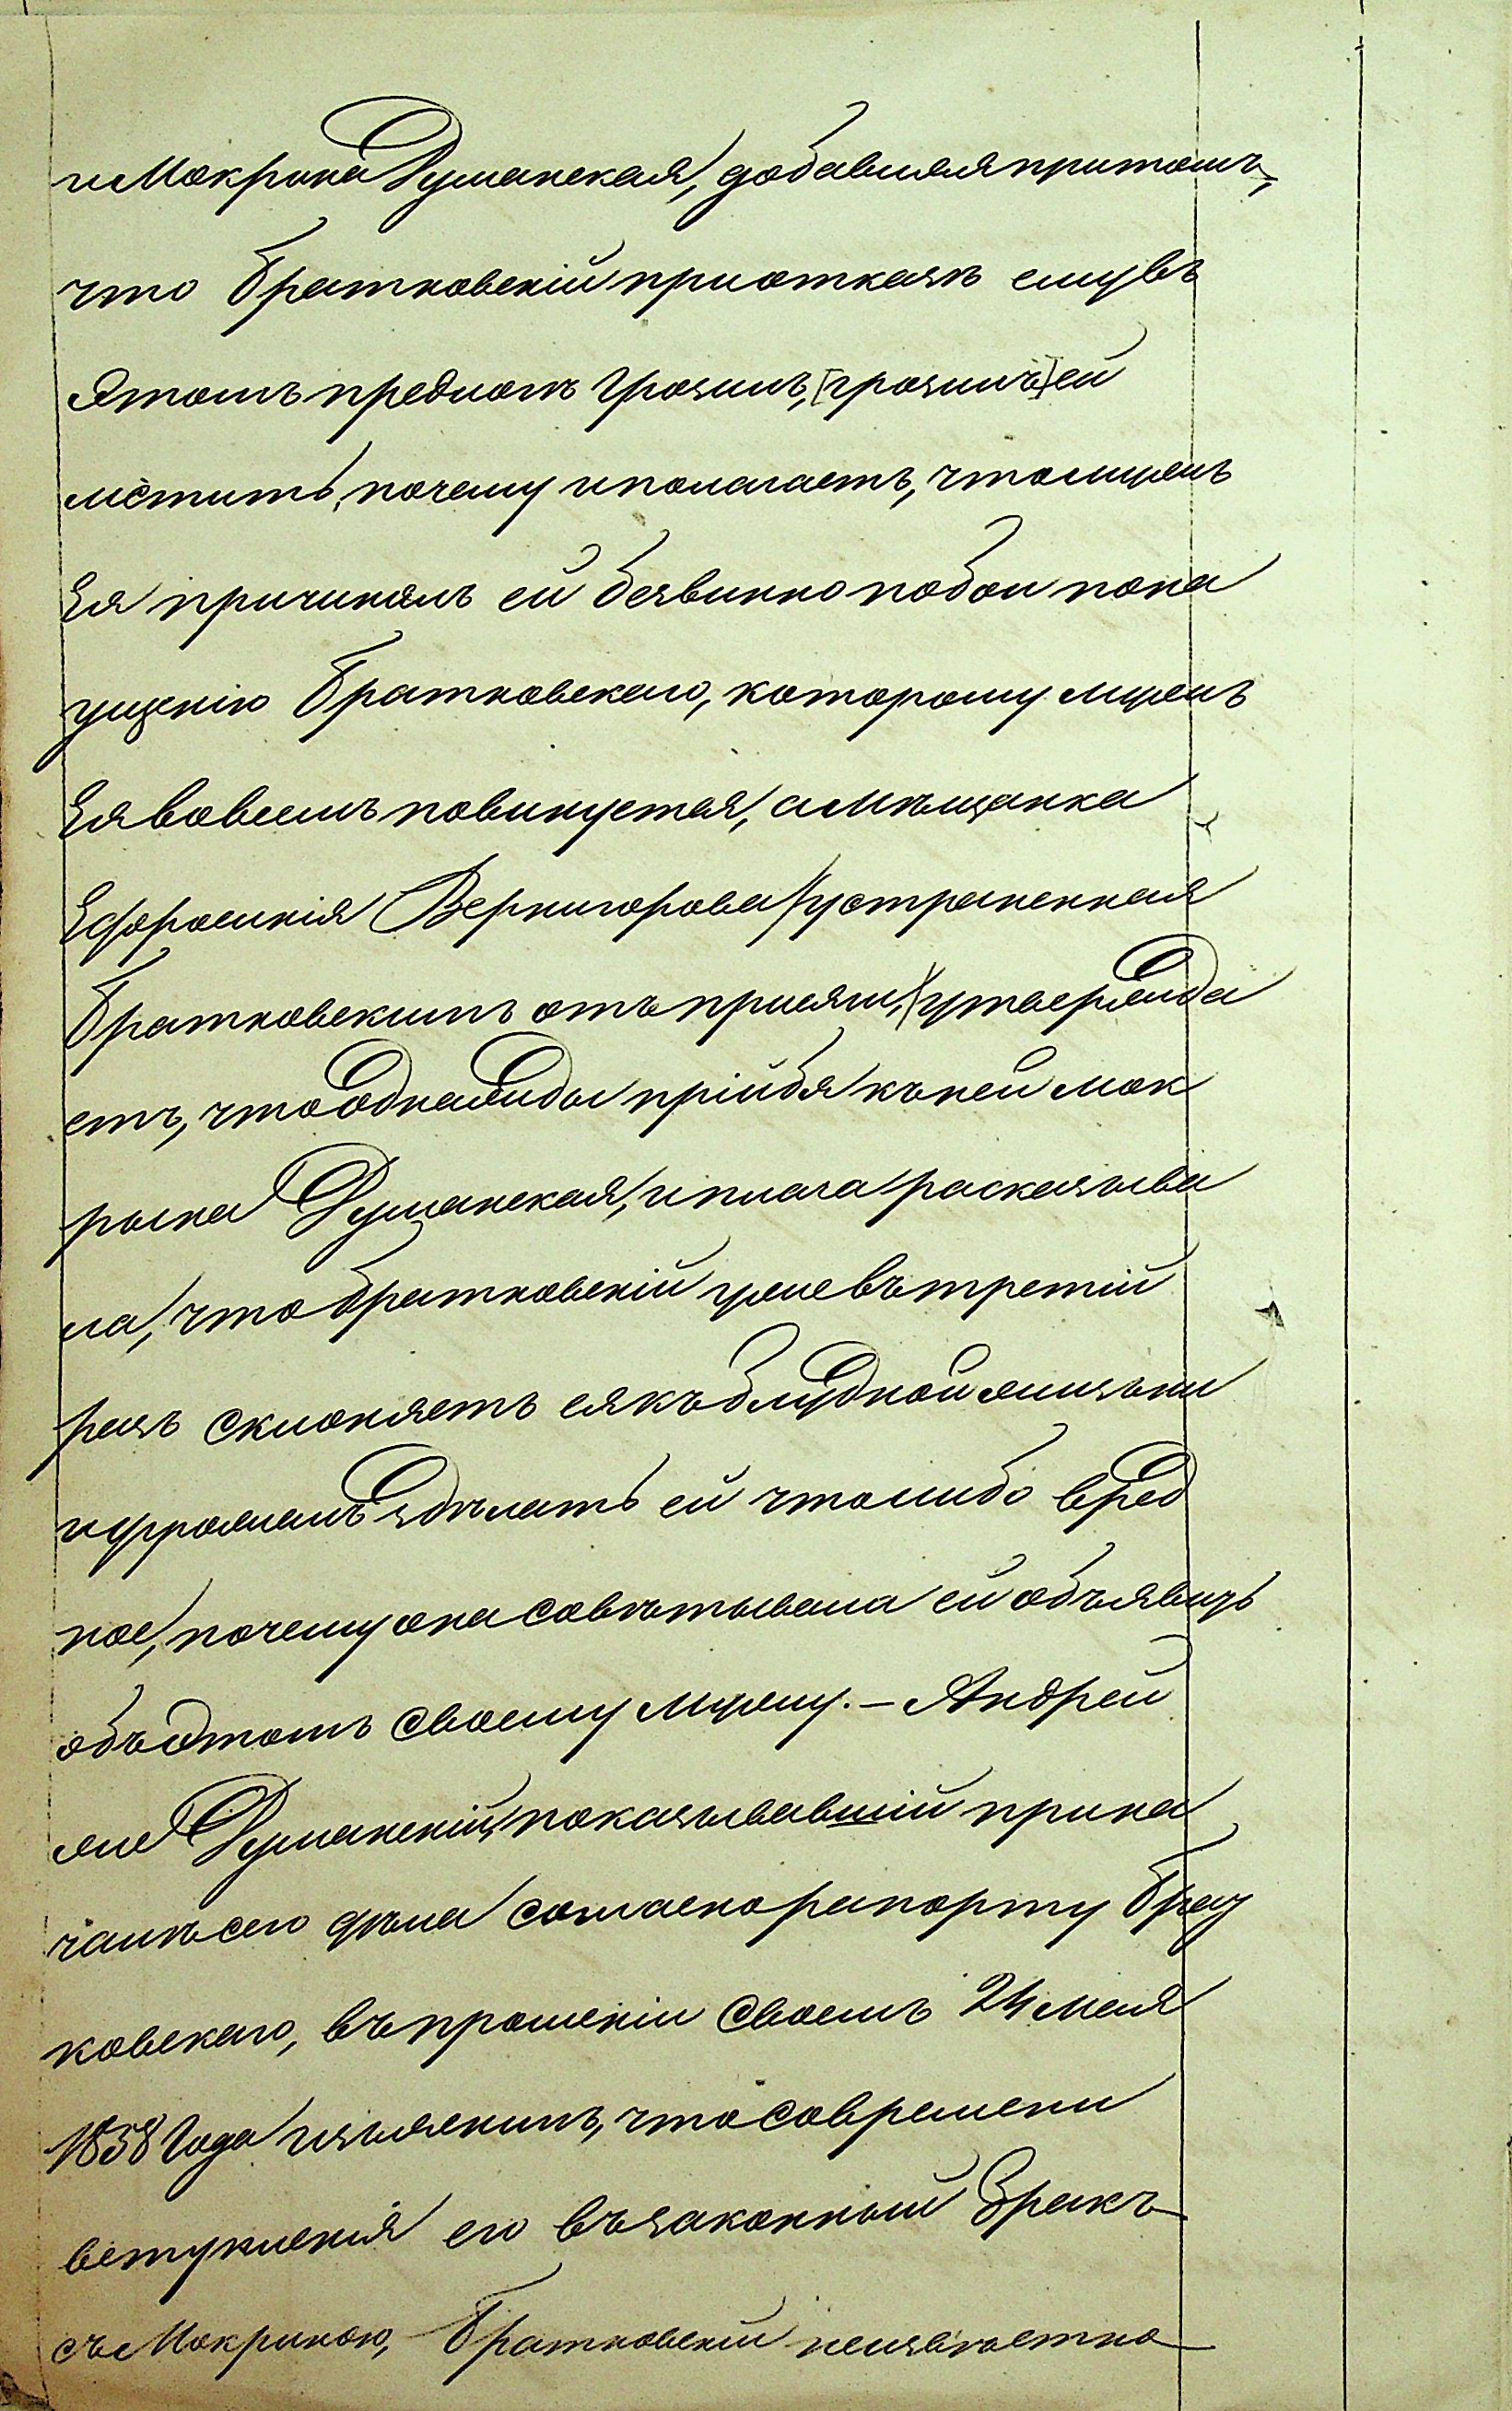 и Мокрина Думанская, добавляя притомъ,
что Братковскій при отказѣ ему въ
этомъ предмѣтѣ грозилъ, [грозилъ] ей
мстить, почему и полагаетъ, что мужъ
Ея причинялъ ей безвинно побои по на
ущенію Братковскаго, которому мужъ
Ея вовсемъ повинуется, а Мѣщанка
Ефросинія Вернигорова /устраненная
Братковскимъ отъ присяги,/ утвержда
етъ, что однажды прійдя къ ней Мок
рына Думанская, и плача расказыва
ла, что Братковскій уже въ третій
разъ склоняетъ ея къ блудной жизни
и угрожалъ здѣлать ей что либо вред
ное, почему она совѣтывала ей объявить
объ этомъ своему мужу. – Андрей
же Думанскій, показывавшій при на
чалѣ сего дѣла согласно рапорту Брат
ковскаго, въ прошеніи своемъ 24 мая
1858 года изъяснилъ, что со времени
вступленія его въ законный бракъ
съ Мокриною, Братковскій неизвѣстно